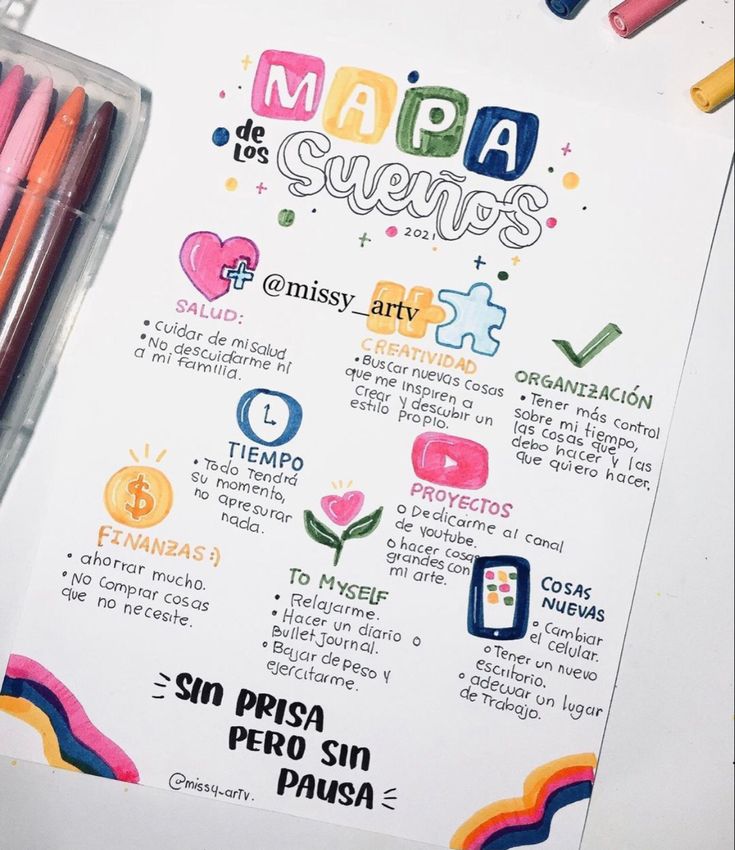 MAPA
de los
Sueños
2021
@missy_artv
SALUD:
• Cuidar de mi salud
• No descuidarme ni
a mi familia.
CREATIVIDAD
• Buscar nuevas cosas
que me inspiren a
Crear y descubir un
estilo propio.
ORGANIZACIÓN
• Tener más control
sobre mi tiempo,
las cosas que
debo hacer y las
que quiero hacer.
TIEMPO
• Todo Tendrá
su momento,
no apresurar
nada.
PROYECTOS
o Dedicarme al canal
de youtube.
o hacer cosas
grandes con
mi arte.
FINANZAS:)
• ahorrar mucho.
• No comprar cosas
que no necesite.
To MYSELF
• Relajarme.
• Hacer un diario o
Bullet Journal.
• Bajar de peso y
ejercitarme.
COSAS
NUEVAS
o Cambiar
el celular.
o Tener un nuevo
escritorio.
o adecuar un lugar
de Trabajo.
SIN PRISA
PERO SIN
PAUSA
@missy-artv.